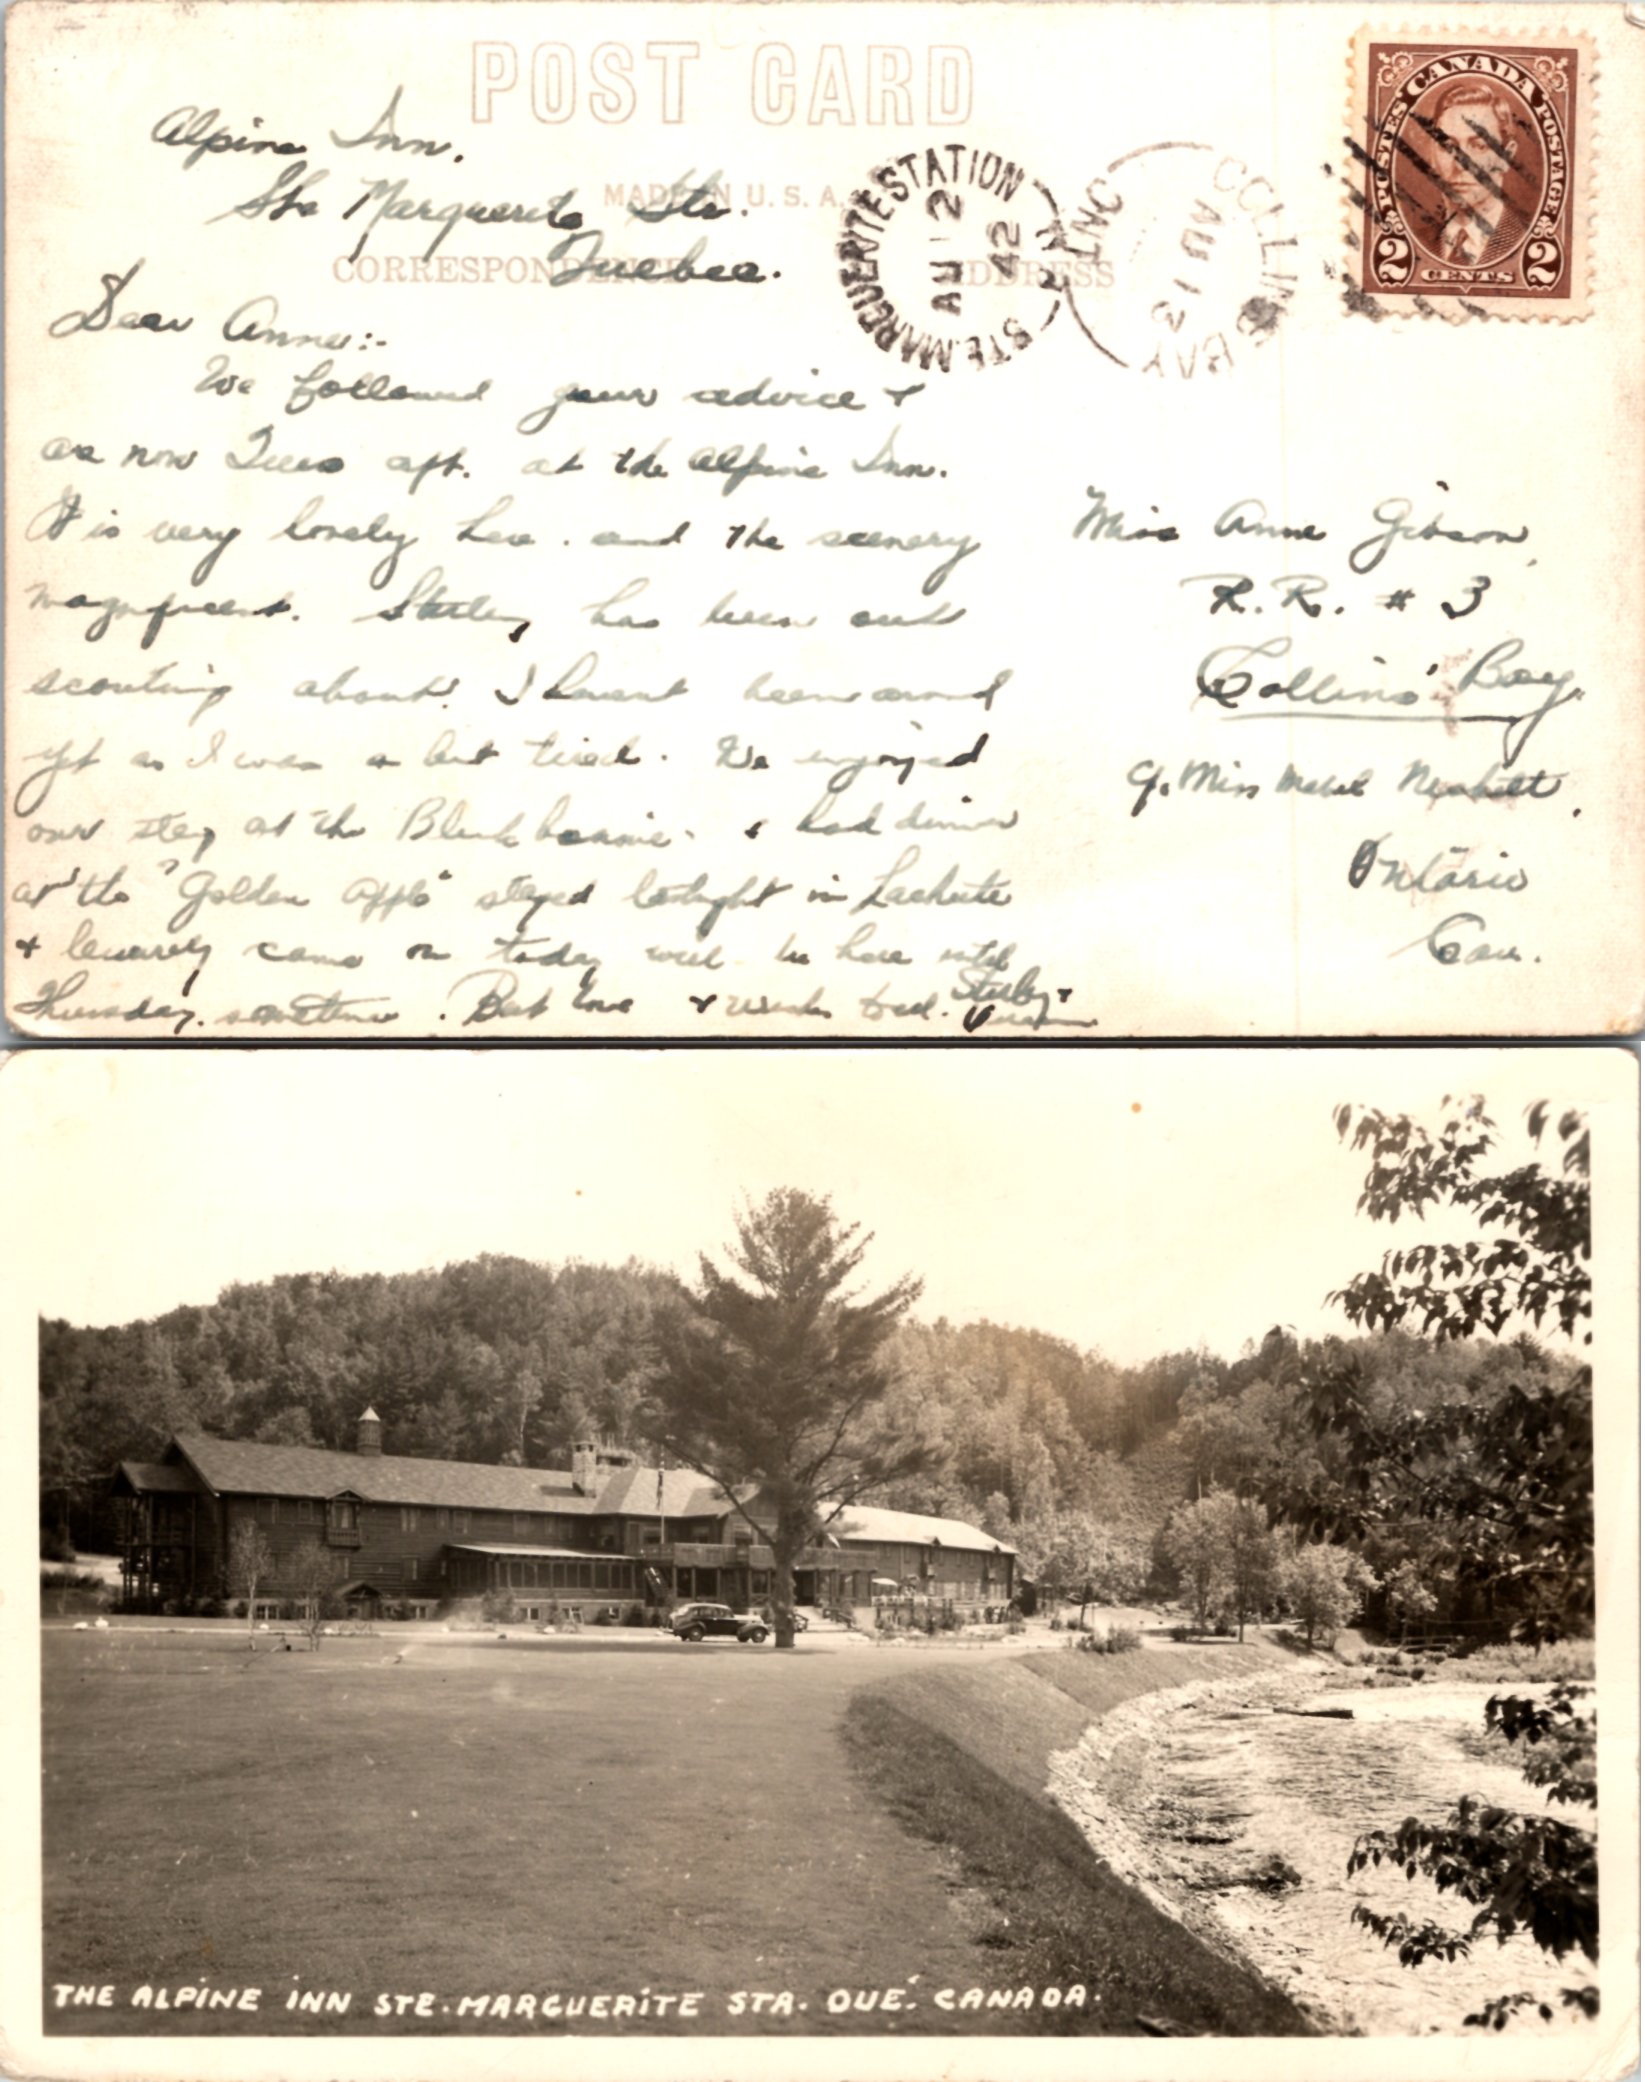 POST CARD
MADE IN U.S.A.
CORRESPONDENCE
ADDRESS
CANADA
POSTES POSTAGE
2 CENTS 2
STE. MARGUERITE STATION
AU 12
42
P.Q.
COLLINS BAY
ONT
AU 13
Alpine Inn.
Ste Marguerite Sta.
Quebec.
Dear Anne:-
We followed your advice +
are now Tues aft. at the Alpine Inn.
It is very lovely here. and the scenery
magnificent. Sterling has been out
scouting about. I havent been around
yet as I was a bit tired. We enjoyed
our stay at the & had dinner
at the "Golden Apple" stayed last night in Lachute
+ leisurely came on today will be here until
Thursday. sometime. Best love +
Miss Anne Gibson,
R.R. # 3
Collins' Bay,
Miss Mabel
Ontario
Can.
THE ALPINE INN STE. MARGUERITE STA. QUÉ. CANADA.